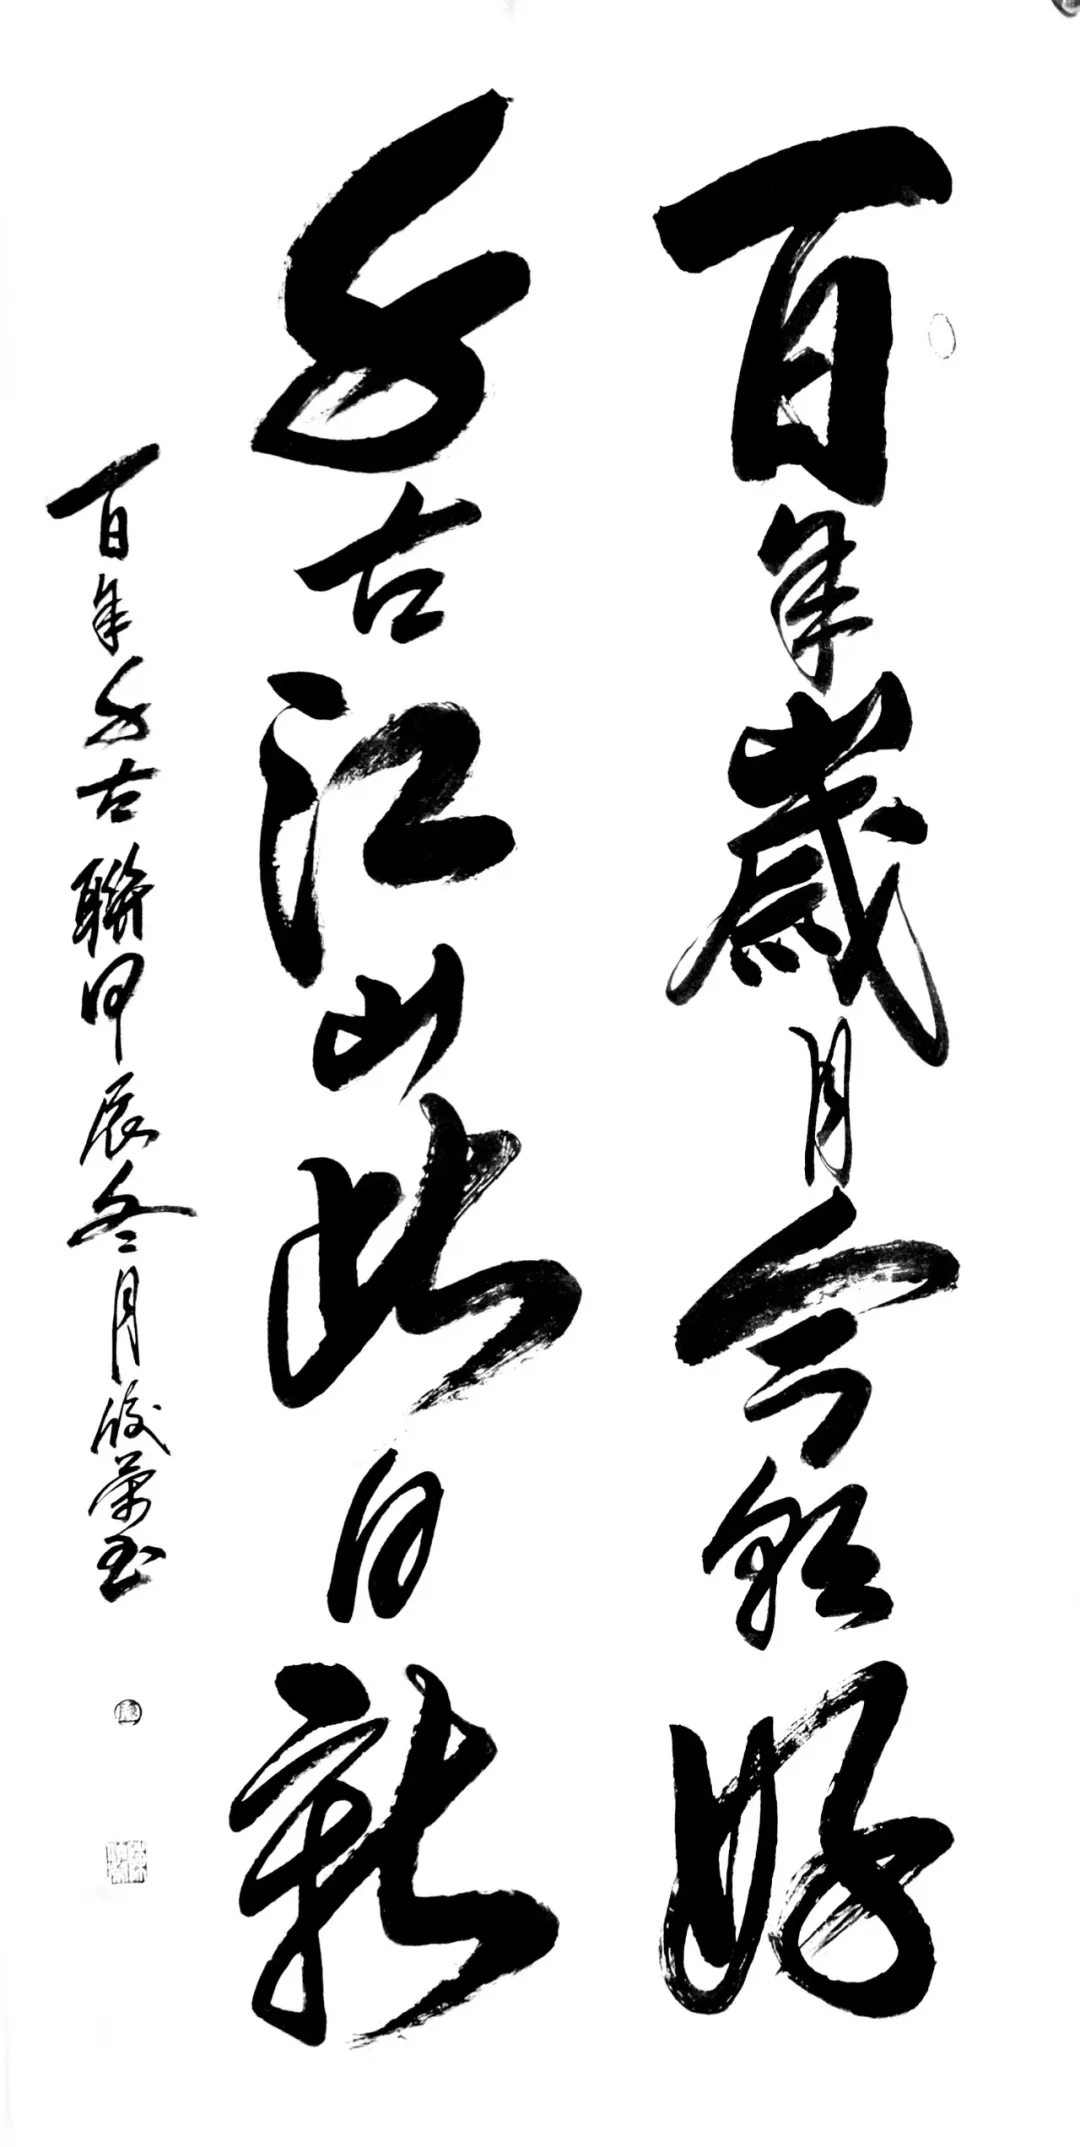 百年歲月今朝好
千古江山此日新
百年千古聯甲辰冬月俊榮書